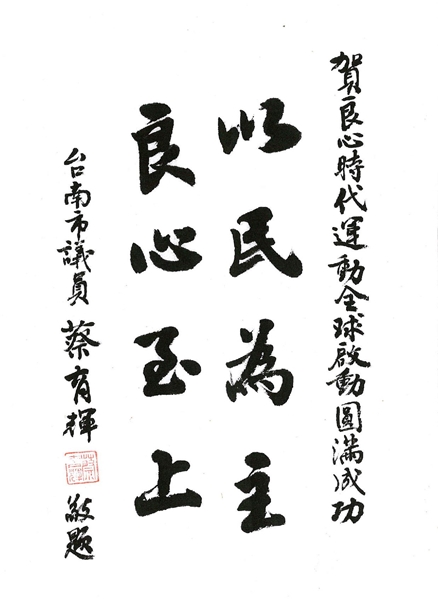 賀良心時代運動全球啟動圓滿成功
以民為主
良心至上
台南市議員 蔡育輝 敬題